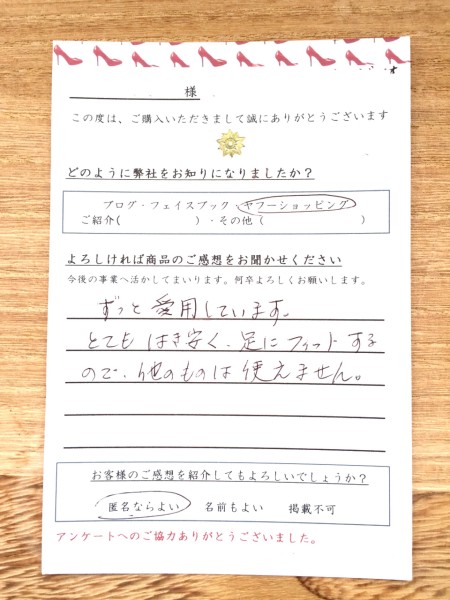 様
この度は、ご購入いただきまして誠にありがとうございます
どのように弊社をお知りになりましたか？
ブログ・フェイスブック・ヤフーショッピング
ご紹介(　　　　　　　)・その他（　　　　　　　　）
よろしければ商品のご感想をお聞かせください
今後の事業へ活かしてまいります。何卒よろしくお願いします。
ずっと愛用しています。
とても はき安く、足にフィットする
ので、他のものは使えません。
お客様のご感想を紹介してもよろしいでしょうか？
匿名ならよい　名前もよい　掲載不可
アンケートへのご協力ありがとうございました。